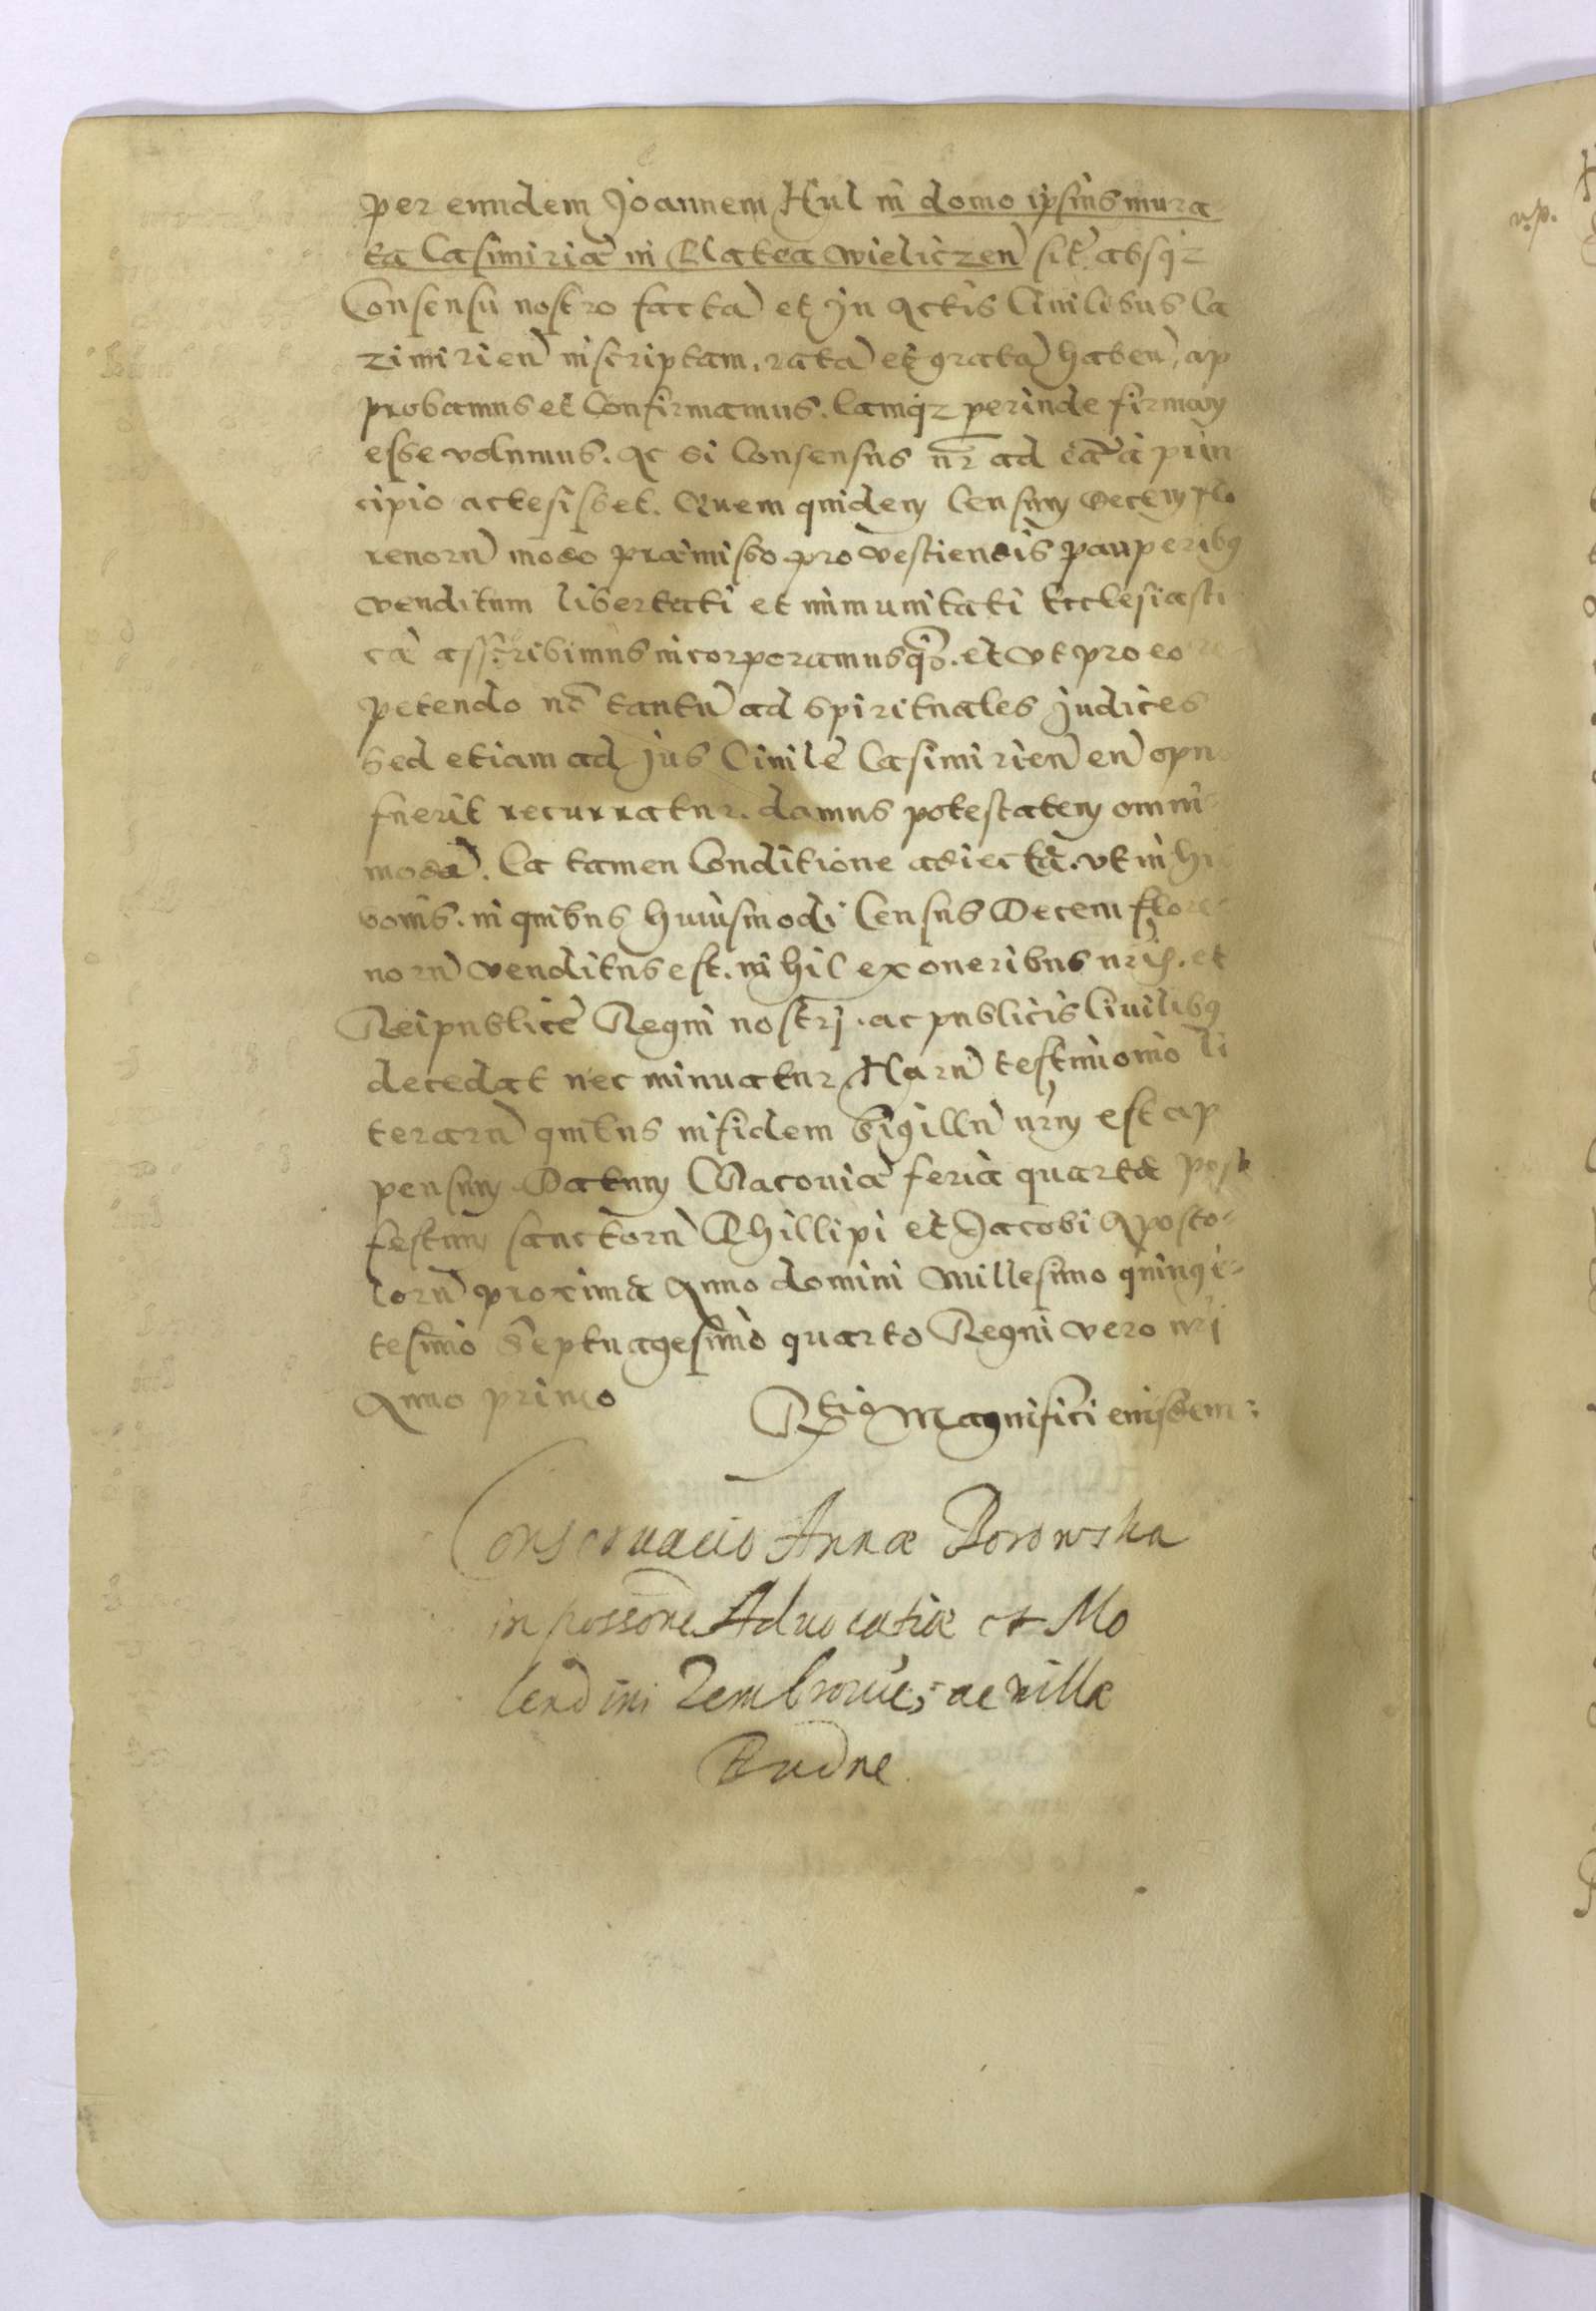 per eundem Joannem Hul in domo ipsius mura
ta Casimiriæ in Platea wieliczen̄ sit̄ absqz
Consensu nostro factā et Jn Actis Ciuilibus Ca
zimirien̄ inscriptam, ratā et gratā haben̄, ap
probamus et Confirmamus. Eamqz perinde firmam
esse volumus. Ac si Consensus nr̄ ad eā à prin
cipio accessisset. Quem quidem Censum decem flo
renorū modo præmisso pro vestiendis pauperibus
venditum libertati et immunitati Ecclesiasti
cæ asscribimus incorporamusq3. et vt pro eo re
petendo nō tantū ad spirituales Judices
sed etiam ad Jus Ciuile Casimirien̄ cū opus
fuerit recurratur. damus potestatem omni-
modā. Ea tamen Conditione adiecta. vt in his
bonis. in quibus huiusmodi Census Decem flore-
norū venditus est. nihil ex oneribus nr̄is. et
Reipublicę Regni nostrj. ac publicis Ciuilibus
decedat nec minuatur Harū testimonio li
terarū quibus in fidem Sigillū nr̄m est ap
pensum Datum Cracouiæ feria quarta post
festum sanctorū Phillipi et Jacobi Aposto-
lorū proxima Anno domini Millesimo quinge-
tesimo Septuagesimo quarto Regni vero nr̄j
Anno primo
Rtio Magnifici eiusdem:
Conseruacio Annæ Borowska
in possone Aduocatiæ et Mo
lendini Zembrouien̄ ac villæ
Rudne
v.p.